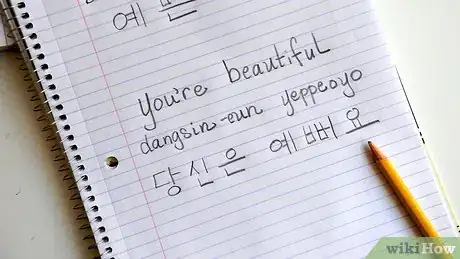 예
You're beautiful
dangsin-eun yeppeoyo
당신은 예뻐요
wikiHow